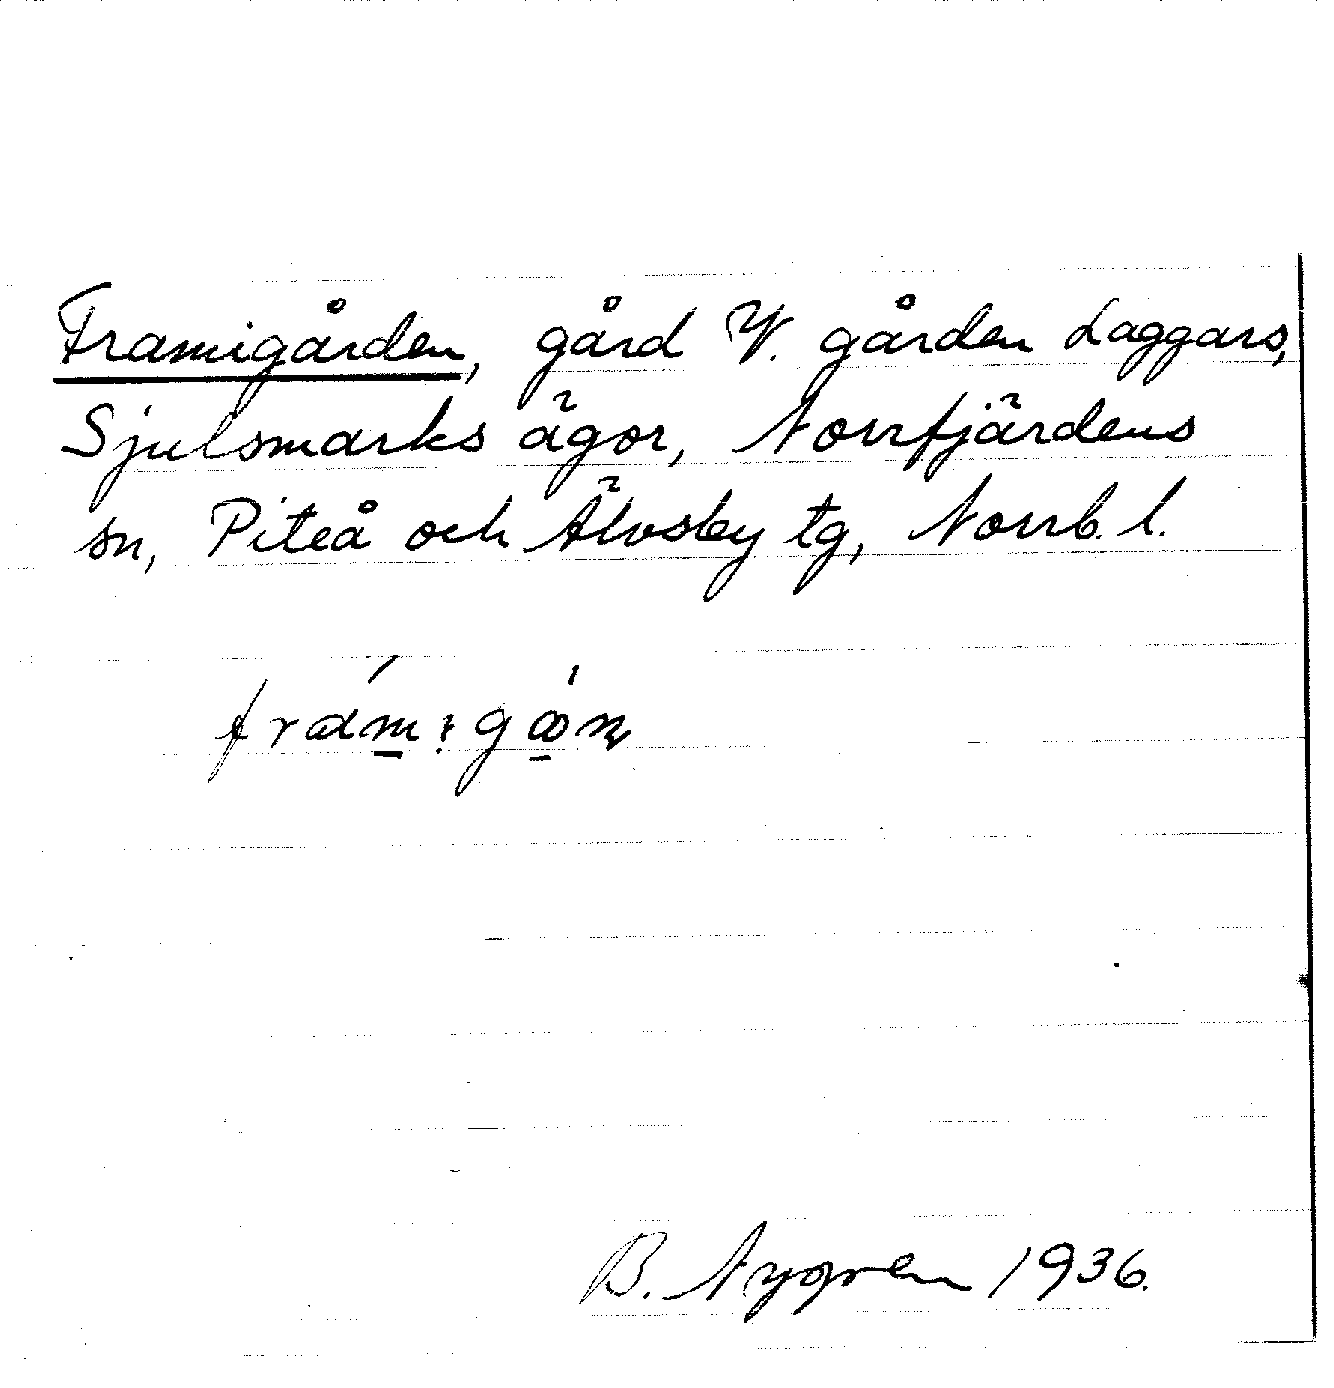 Framigården, gård V. gården Laggars,
Sjulsmarks ägor, Norrfjärdens
sn, Piteå och Älvsby tg, Norrb. l.
B. Nygren 1936.